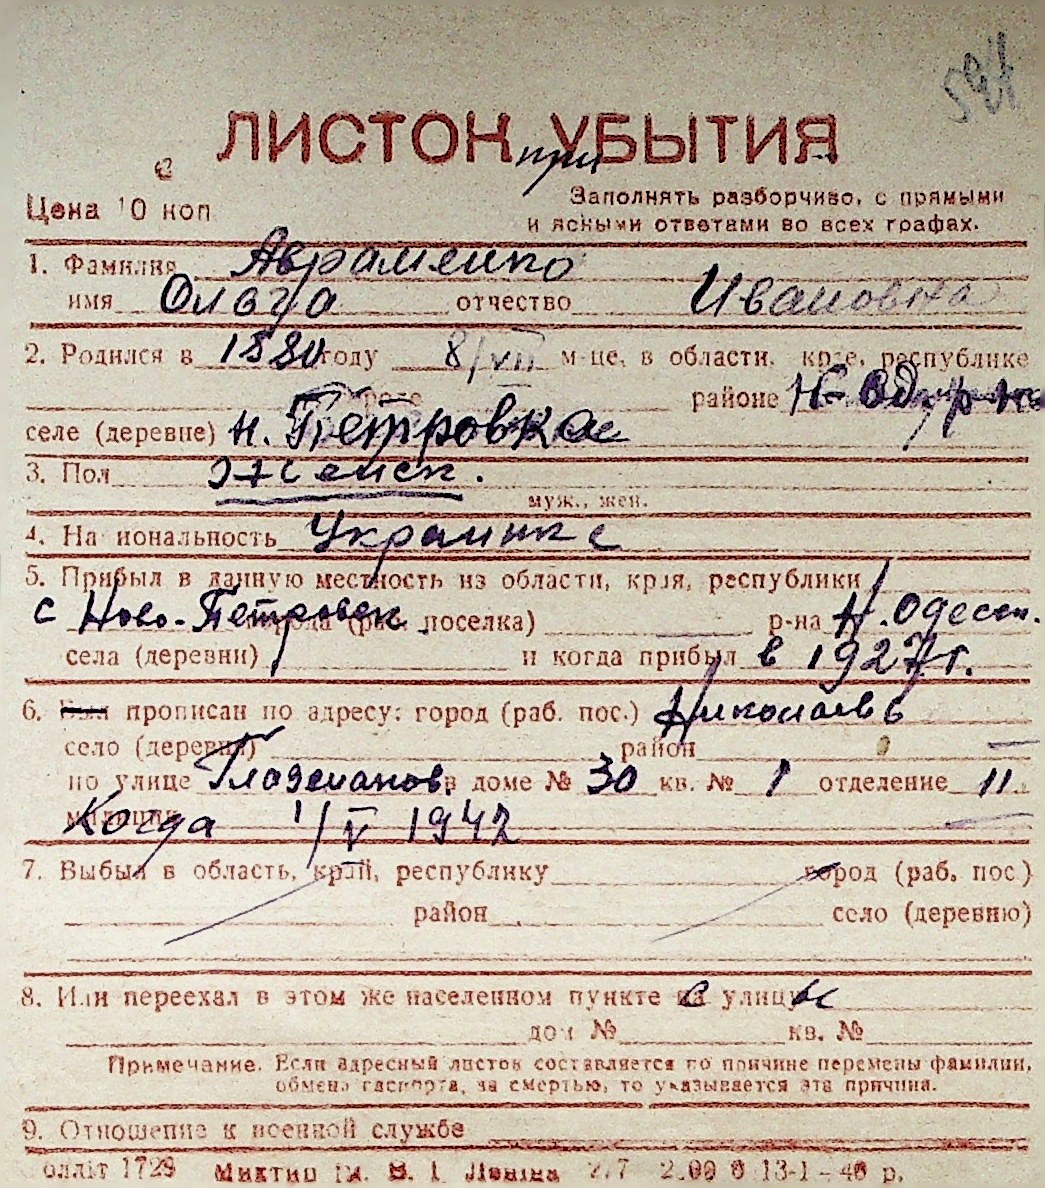 ЛИСТОК УБЫТИЯ
при
Цена 10 коп
Заполнять разборчиво, с прямыми
и ясными ответами во всех графах.
1. Фамилия Авраменко
имя Ольга отчество Ивановна
2. Родился в 1880 году 8/VII м-це, в области, крае, республике
районе
селе (деревне) Н. Петровка
3. Пол женск.
муж., жен.
4. Национальность Украинка
5. Прибыл в данную местность из области, края, республики
с Ново-Петровск города (раб. поселка) р-на Н. Одесск.
села (деревни) и когда прибыл в 1927 г.
6. Был прописан по адресу: город (раб. пос.) Николаев
село (деревня) район
по улице в доме № 30 кв. № 1 отделение 11
милиции Когда 1/V 1942
7. Выбыл в область, край, республику город (раб. пос.)
район село (деревню)
8. Или переехал в этом же населенном пункте с улицы
дом № кв. №
Примечание. Если адресный листок составляется по причине перемены фамилии,
обмена паспорта, за смертью, то указывается эта причина.
9. Отношение к военной службе
оллiт 1729 Миктип iм. В. I. Ленiна 13-1-40 р.